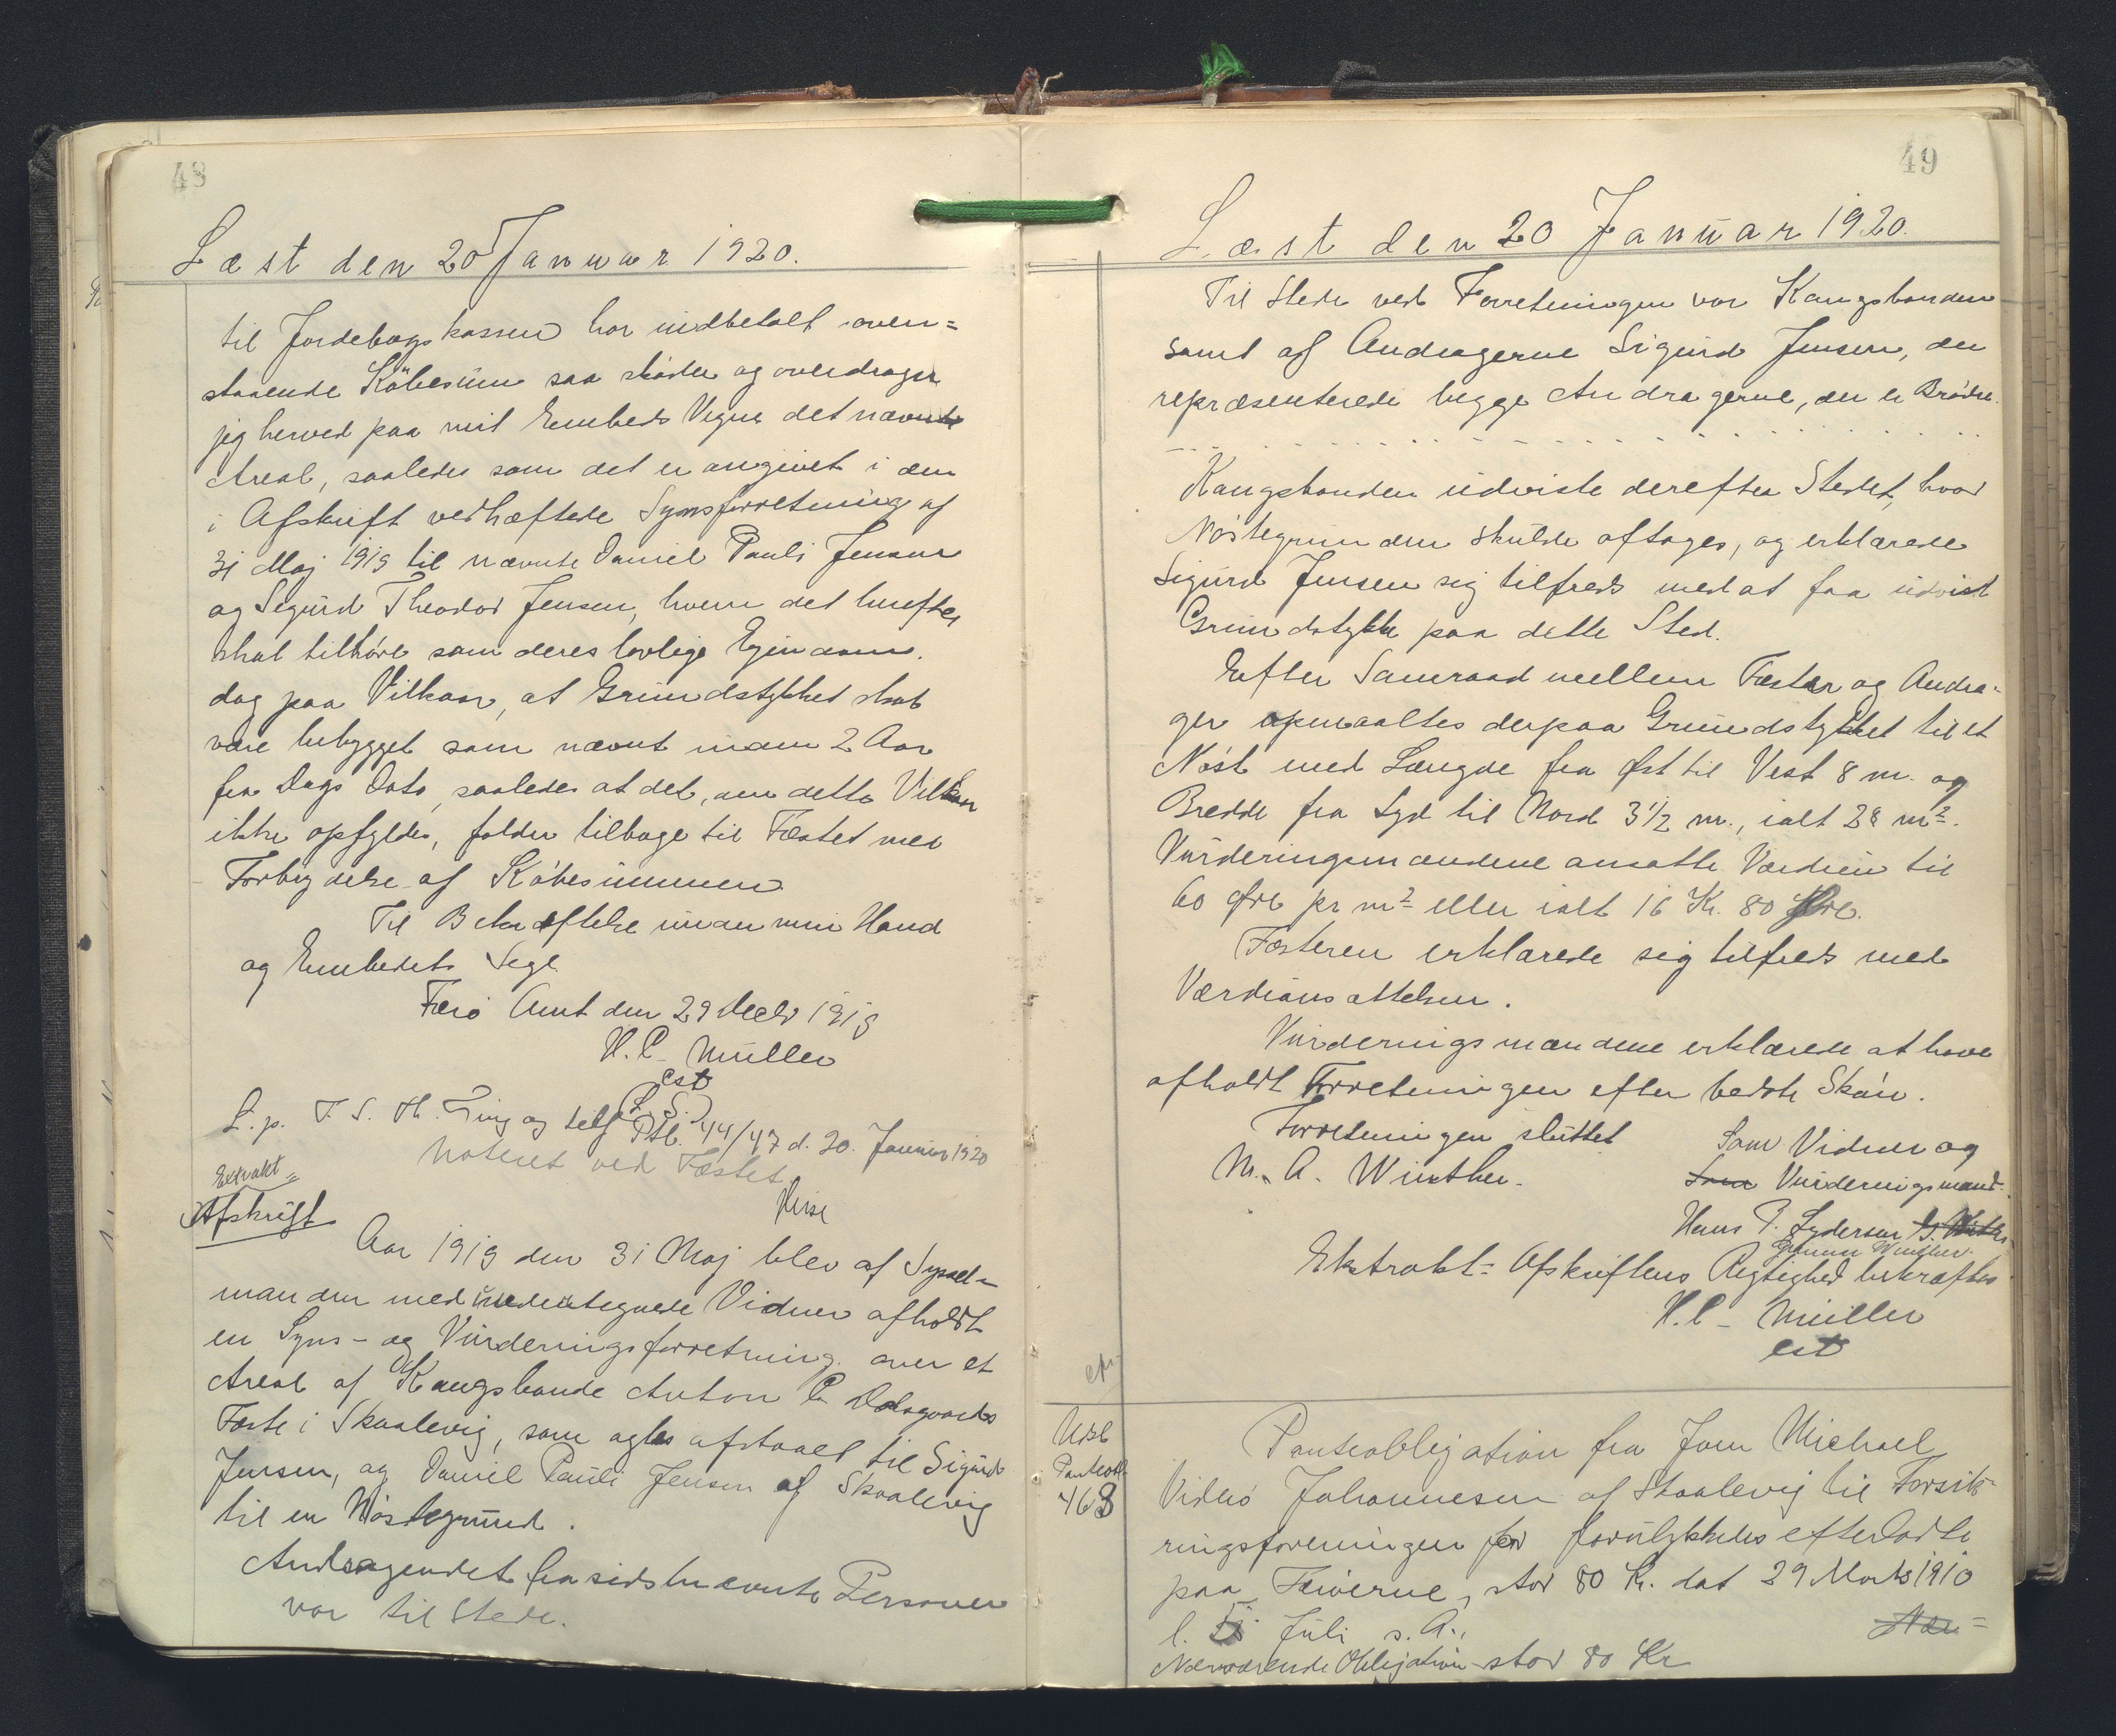 48
Læst den 20 Januar 1920.
til Jordebogskassen har indbetalt oven=
staaende Köbesum saa skøder og overdrager
jeg herved paa mit Embeds Vegne det nævnte
Areal, saaledes som det er angivet i den
i Afskrift vedhæftede Synsforretning af
31 Maj 1919 til nævnte Daniel Pauli Jensen
og Sigurd Theodor Jensen, hvem det herefter
skal tilhöre som deres lovlige Ejendom.
dog paa Vilkaar, at Grundstykket skal
være bebygget som nævnt inden 2 Aar
fra Dags Dato, saaledes at det, om dette Vilkaar
ikke opfyldes, falder tilbage til Fæstet med
Forbrydelse af Köbesummen
Til Bekræftelse under min Haand
og Embedets Segl.
Færö Amt den 29 Decb 1919
H.C. Müller
cst
(L.S.)
L.p. T. S. Th. Ting og Ptb. 44/47 d. 20. Januar 1920
Noteret ved Fæstet
Extrakt=
Afskrift
Aar 1919 den 31 Maj blev af Syssel-
manden med undertegnede Vidner afholdt
en Syns- og Vürderingsforretning over et
Areal af Kongsbonde Anton P. Dalsgaards
Fæste i Skaalevig, som agtes afstaaet til Sigurd
Jensen, og Daniel Pauli Jensen af Skaalevig
til en Nöstegrund.
Andragendet fra sidstnævnte Personer
var til Stede.
49
Læst den 20 Januar 1920.
Til Stede ved Forretningen var Kongsbonden
samt af Andragerne Sigurd Jensen, der
repræsenterede begge Andragerne, der er Brödre.
Kongsbonden udviste derefter Stedet, hvor
Nöstegrunden skulde aftages, og erklærede
Sigurd Jensen sig tilfreds med at faa udvist
Grundstykke paa dette Sted.
Efter Samraad mellem Fæster og Andra-
ger opmaaltes derpaa Grundstykket til et
Nöst med Længde fra Øst til Vest 8 m. og
Bredde fra Syd til Nord 3 1/2 m., ialt 28 m².
Vürderingsmændene ansatte Værdien til
60 Øre pr m² eller ialt 16 Kr. 80 Øre.
Fæsteren erklærede sig tilfreds med
Værdiansættelsen.
Vurderingsmændene erklærede at have
afholdt Forretningen efter bedste Skön.
Forretningen sluttet
Som Vidner og
M. A. Winther.
Som Vürderingsmænd.
Hans P. Lydersen
Gunnar Winther.
Ekstrakt= Afskriftens Rigtighed bekræftes
H.C. Müller
cst
Udsl
Panteobl
463
Panteobligation fra Joen Michael
Viderö Johannesen af Skaalevig til Forsik-
ringsforeningen for forulykkedes efterladte
paa Færöerne, stor 80 Kr. dat 29 Marts 1910
l. Juli s. A.,
Nærværende Obligation stor 80 Kr